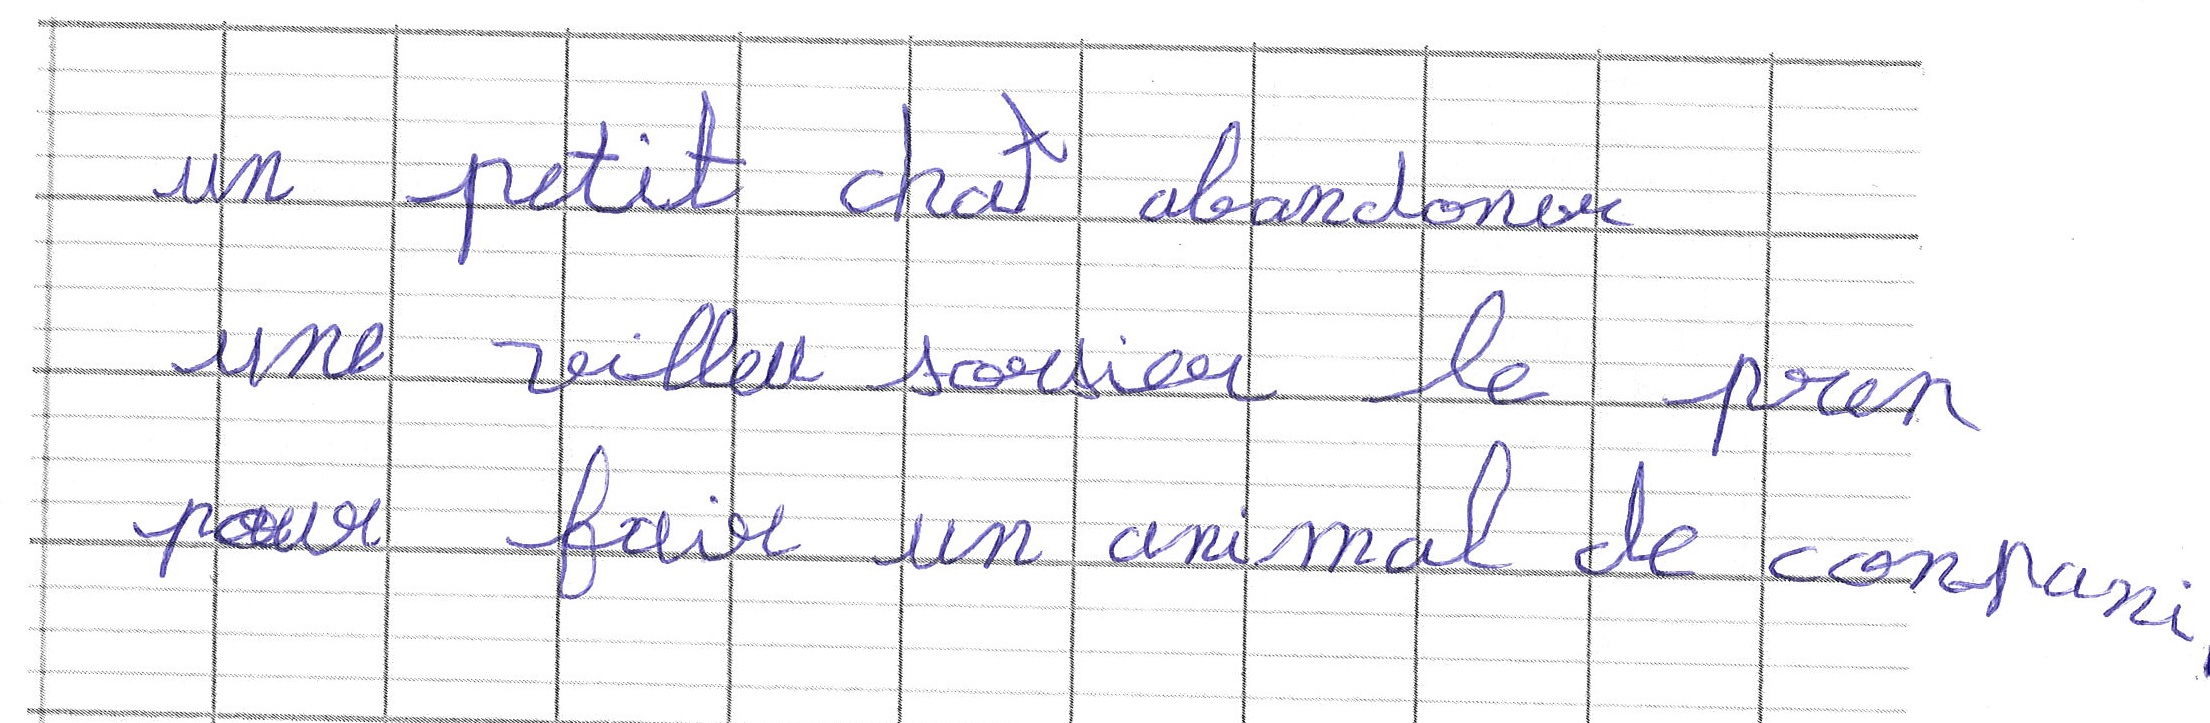 un petit chat abandoner
une villeu sorsier le pren
pour fair un animal de conpani